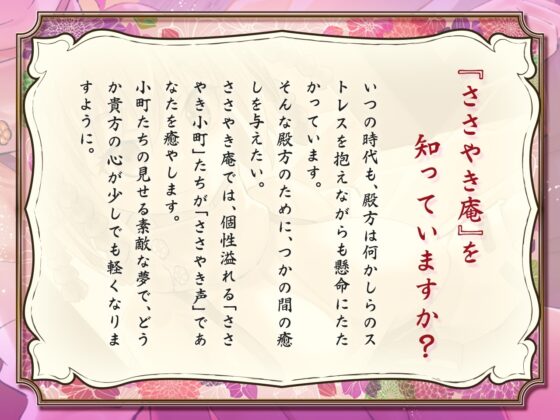 『ささやき庵』を
知っていますか？
いつの時代も、殿方は何かしらのス
トレスを抱えながらも懸命にたた
かっています。
そんな殿方のために、つかの間の癒
しを与えたい。
ささやき庵では、個性溢れる「ささ
やき小町」たちが「ささやき声」であ
なたを癒やします。
小町たちの見せる素敵な夢で、どう
か貴方の心が少しでも軽くなりま
すように。